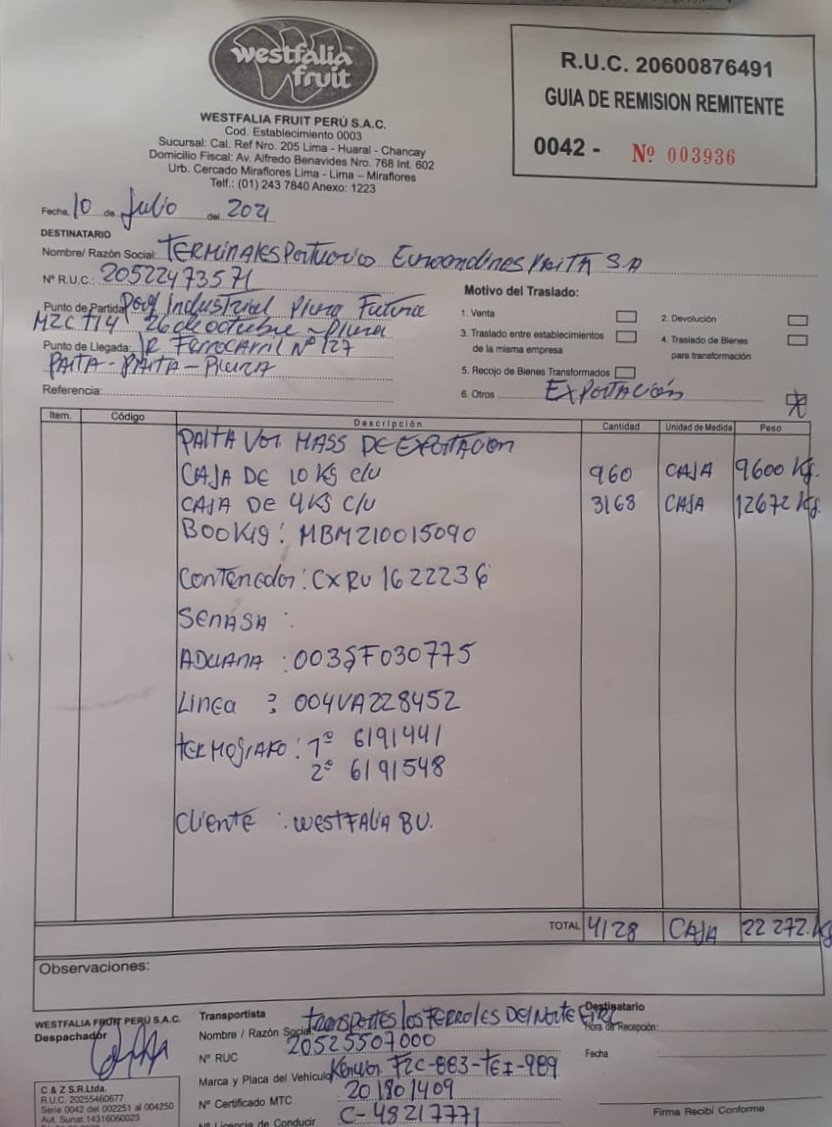 westfalia
fruit
WESTFALIA FRUIT PERÚ S.A.C.
Cod. Establecimiento 0003
Sucursal: Cal. Ref Nro. 205 Lima - Huaral - Chancay
Domicilio Fiscal: Av. Alfredo Benavides Nro. 768 Int. 602
Urb. Cercado Miraflores Lima - Lima – Miraflores
Telf.: (01) 243 7840 Anexo: 1223
R.U.C. 20600876491
GUIA DE REMISION REMITENTE
0042 - Nº 003936
Fecha, 10 de Julio del 2021
DESTINATARIO
Nombre/ Razón Social: TERMINALES Portuarico Euroandinos PAITA S.A
Nº R.U.C.: 20522473571
Punto de Partida: Parq Industrial Piura Futura
MZC LT14 26 de octubre - Piura
Punto de Llegada: JR FerrocArril Nº 127
PAITA - PAITA - PIURA
Referencia:
Motivo del Traslado:
1. Venta
2. Devolución
3. Traslado entre establecimientos
de la misma empresa
4. Traslado de Bienes
para transformación
5. Recojo de Bienes Transformados
6. Otros EXPORTACIÓN
Item. Código Descripción Cantidad Unidad de Medida Peso
PALTA Var HASS DE EXPORTACION
CAJA DE 10 KG c/u 960 CAJA 9600 Kg.
CAJA DE 4 KG C/U 3168 CAJA 12672 Kg.
BOOKIG: MBM210015090
Contenedor: CXRU 1622236
SENASA :
ADUANA : 003SF030775
Linea : 004VA228452
TERMOGRAFO: 1º 6191441
2º 6191548
Cliente : WESTFALIA BV.
TOTAL 4128 CAJA 22 272.Kg
Observaciones:
WESTFALIA FRUIT PERÚ S.A.C.
Despachador
C & Z S.R.Ltda.
R.U.C. 20255460677
Serie 0042 del 002251 al 004250
Aut. Sunat 14316060023
Transportista
Nombre / Razón Social TRANSPORTES los FERROLES DEL NORTE EIRL
Nº RUC 20525507000
Marca y Placa del Vehículo F2C-883-TEI-989
Nº Certificado MTC 201801409
Nº Licencia de Conducir C-48217771
Destinatario
Hora de Recepción:
Fecha
Firma Recibí Conforme